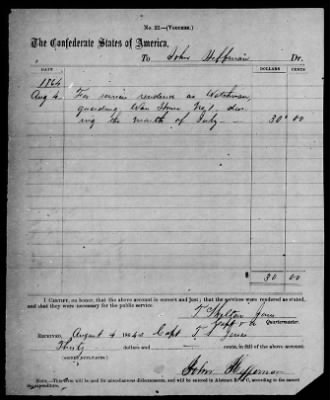 No. 22.—(Voucher.)
The Confederate States of America,
To John Heffernan Dr.
DATE. DOLLARS CENTS
1864
Aug 4 For services rendered as Watchman,
guarding Ware House No 1. du-
ring the month of July — 30 00
$ 30 00
I CERTIFY, on honor, that the above account is correct and just; that the services were rendered as stated,
and that they were necessary for the public service.
T Skelton Jones
Capt
Quartermaster.
RECEIVED, August 4 1864, of Capt T. Jones
Thirty dollars and — cents, in full of the above account.
(SIGNED DUPLICATES.)
John Heffernan
NOTE.—This form will be used for miscellaneous disbursements, and will be entered in Abstract B or C, according to the